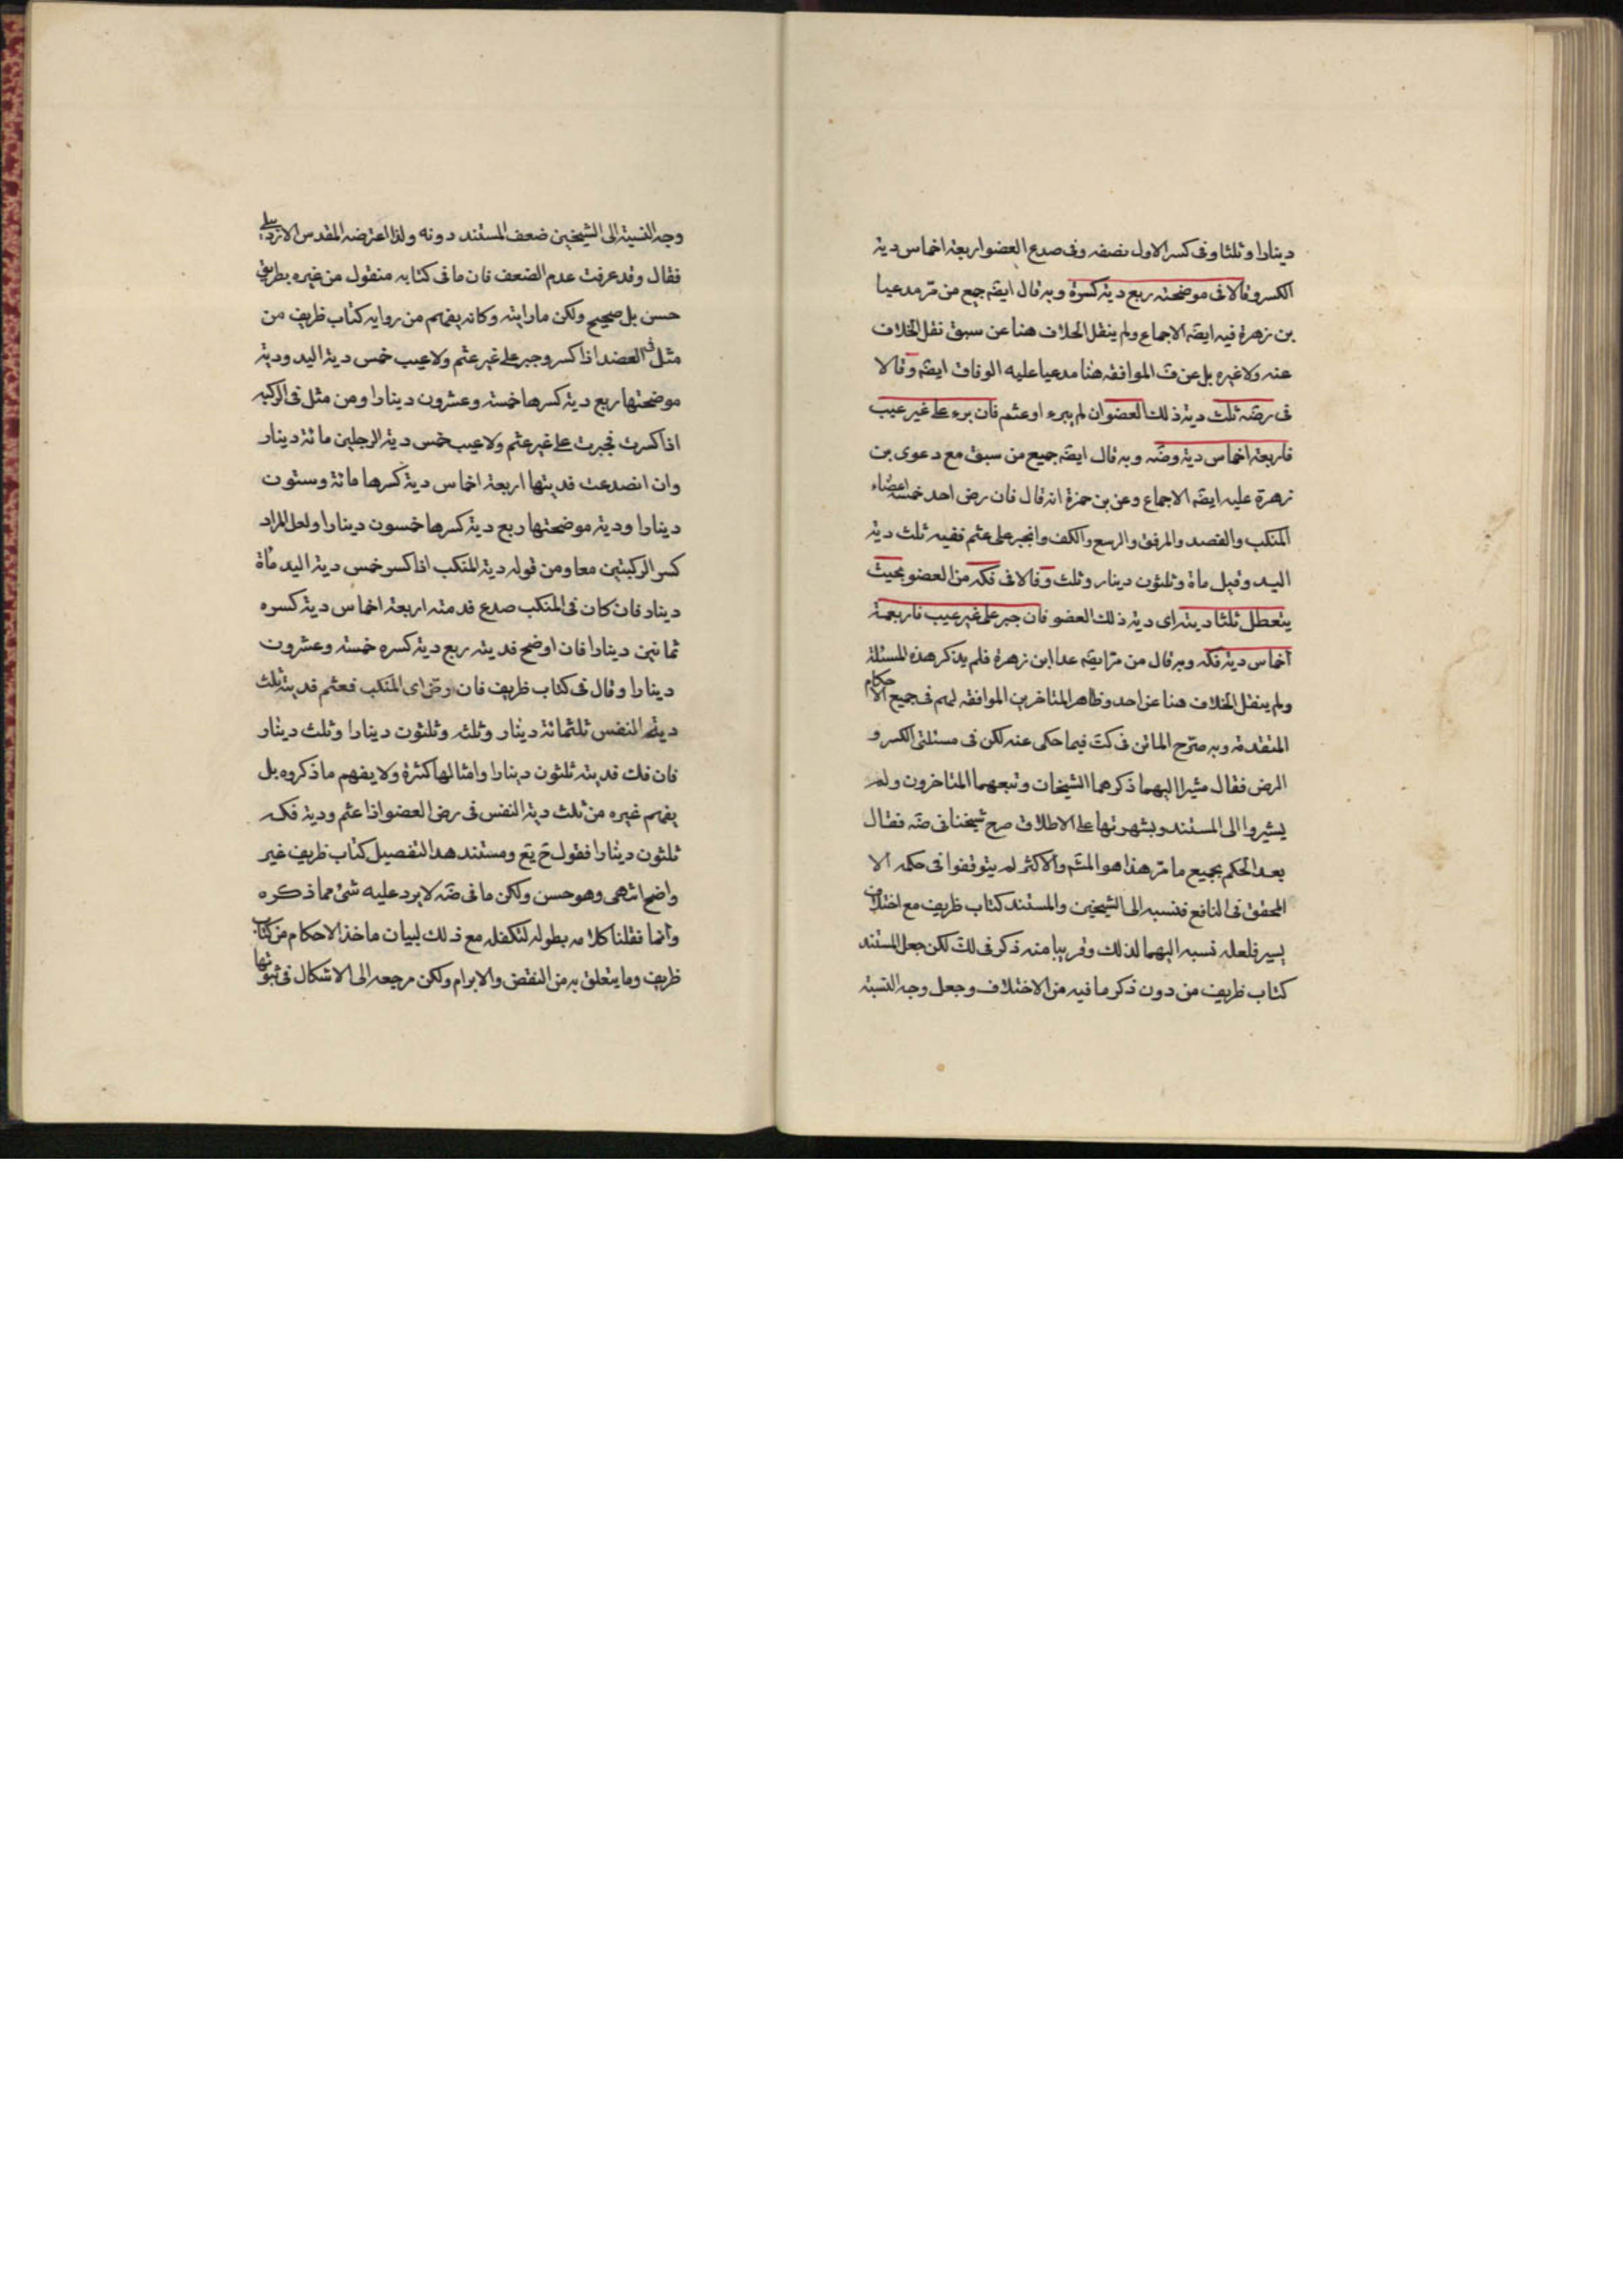 دينارا وثلثا وفى كسر الاول نصفه وفى صدع العضو اربعة اخماس دية
الكسر وقالا فى موضحته ربع دية كسرة وبه قال ايضَه جمع من مرّ مدعيا
بن زهرة فيه ايضَه الاجماع ولم ينقل الخلاف هنا عن سبق نقل الخلاف
عنه ولا غيره بل عن فَ الموافقه هنا مدعيا عليه الوفاق ايضَه وقالا
فى رضَه ثلث دية ذلك العضو ان لم يبرء او عثم فان برء على غير عيب
فاربعة اخماس دية رضَه وبه قال ايضَه جميع من سبق مع دعوى بن
زهرة عليه ايضَه الاجماع وعن بن حمزة انه قال فان رض احد خمسة اعضاء
المنكب والقصد والمرفق والرسع والكف وانجبر على عثم ففيه ثلث دية
اليد وقيل ماة وثلثون دينار وثلث وقالا فى فكه من العضو بحيث
يتعطل ثلثا ديته اى دية ذلك العضو فان جبر على غير عيب فاربعة
اخماس دية فكه وبه قال من مرّ ايضَه عدا ابن زهرة فلم يذكر هذه المسئلة
ولم ينقل الخلاف هنا عن احد وظاهر المتاخرين الموافقه لهم فى جميع الاحكام
المتقدمة وبه صرّح الماتن فى كتَ فيما حكى عنه لكن فى مسئلتى الكسر و
الرض فقال مشيرا اليهما ذكرهما الشيخان وتبعهما المتاخرون ولم
يشيروا الى المستند وبشهرتها على الاطلاق صرح شيخنا فى ضَه فقال
بعد الحكم بجميع ما مرّ هذا هو المشَه والاكثر لم يتوقفوا فى حكمه الا
المحقق فى النافع فنسبه الى الشيخين والمستند كتاب ظريف مع اختلاف
يسير فلعله نسبه اليهما لذلك وقريبا منه ذكر فى لكَ لكن جعل المستند
كتاب ظريف من دون ذكر ما فيه من الاختلاف وجعل وجه النسبة
وجه النسبة الى الشيخين ضعف المستند دونه ولذا اعترضه المقدس الاردبيلى
فقال وقد عرفت عدم الضعف فان ما فى كتابه منقول من غيره بطريق
حسن بل صحيح ولكن ما رايته وكانه يفهم من روايه كتاب ظريف من
مثل فى العضد اذا كسر وجبر على غير عثم ولا عيب خمس دية اليد ودية
موضحتها ربع دية كسرها خمسة وعشرون دينارا ومن مثل فى الركبه
اذا كسرت فجبرت على غير عثم ولا عيب خمس دية الرجلين مائة دينار
وان انصدعت فديتها اربعة اخماس دية كسرها مائة وستون
دينارا ودية موضحتها ربع دية كسرها خمسون دينارا ولعل المراد
كسر الركبتين معا ومن قوله دية المنكب اذا كسر خمس دية اليد مأة
دينار فان كان فى المنكب صدع فدمته اربعة اخماس دية كسره
ثمانين دينارا فان اوضح فديته ربع دية كسره خمسة وعشرون
دينارا وقال فى كتاب ظريف فان رض اى المنكب فعثم فديته ثلث
دية النفس ثلثمائة دينار وثلثه وثلثون دينارا وثلث دينار
فان فك فديته ثلثون دينارا وامثالها كثرة ولا يفهم ما ذكروه بل
يفهم غيره من ثلث دية النفس فى رض العضو اذا عثم ودية فكه
ثلثون دينارا فقول حَ يَع ومستند هذا التفصيل كتاب ظريف غير
واضح انتهى وهو حسن ولكن ما فى ضَه لا يرد عليه شئ مما ذكره
وانما نقلنا كلامه بطوله لتكفله مع ذلك لبيان ماخذ الاحكام من كتاب
ظريف وما يتعلق به من النقض والابرام ولكن مرجعه الى الاشكال فى ثبوتها